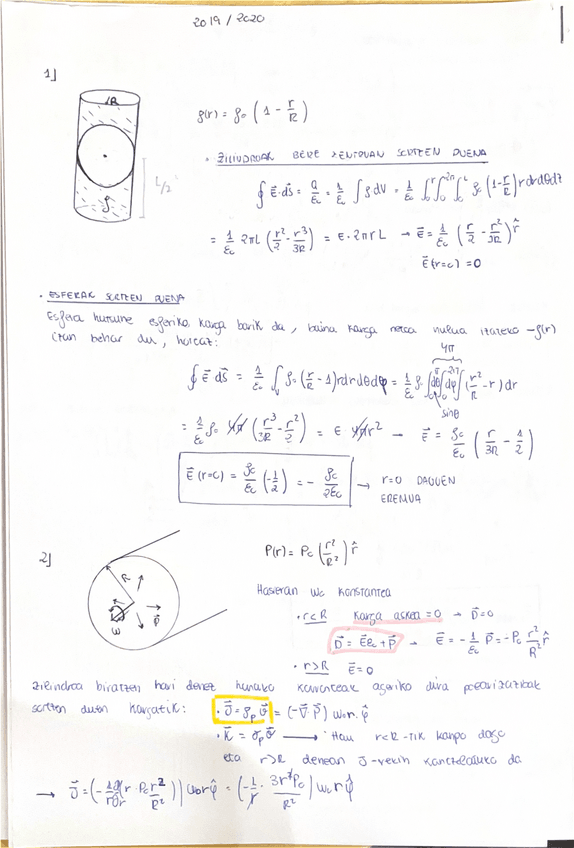 2019 / 2020
1]
R
L/2
ρ
ρ(r) = ρ₀ (1 - r/R)
· ZILINDROAK BERE ZENTROAN SORTZEN DUENA
∮ E⃗·ds⃗ = Q/ε₀ = 1/ε₀ ∫ ρ dV = 1/ε₀ ∫₀^r ∫₀^2π ∫₀^L ρ₀ (1 - r/R) r dr dθ dz
= 1/ε₀ 2πL (r²/2 - r³/3R) = E · 2πrL → E⃗ = 1/ε₀ (r/2 - r²/3R) r̂
E⃗(r=0) = 0
· ESFERAK SORTZEN DUENA
Esfera hutsune esferiko karga barik da, baina karga netoa nulua izateko -ρ(r)
izan behar du, horregatik:
4π
∮ E⃗ ds⃗ = 1/ε₀ ∫ ρ₀ (r/R - 1) r dr dθ dφ = 1/ε₀ ρ₀ ∫₀^π dθ ∫₀^2π dφ ∫ (r²/R - r) dr
sinθ
= 1/ε₀ ρ₀ 4π (r³/3R - r²/2) = E 4πr² → E⃗ = ρ₀/ε₀ (r/3R - 1/2)
E⃗(r=0) = ρ₀/ε₀ (-1/2) = - ρ₀/2ε₀ → r=0 DAGOEN
EREMUA
2]
R
P⃗
ω
P(r) = P₀ (r²/R²) r̂
Hasieran ω₀ konstantea
· r<R Karga askea = 0 → D⃗=0
D⃗ = E⃗ε₀ + P⃗ → E⃗ = - 1/ε₀ P⃗ = -P₀ r²/R² r̂
· r>R E⃗=0
Zilindroa biratzen hari denez hanako korronteak agertiko dira polarizazioak
sortzen duten kargatik: · J⃗ = ρₚ v⃗ = (-∇⃗ P⃗) ω₀r · φ̂
· K⃗ = σₚ v⃗ → Hau r<R-tik kanpo dago
eta r>R denean J⃗-rekin kantzelatuko da
→ J⃗ = (- 1/r ∂/∂r (r · P₀ r²/R²)) ω₀ r φ̂ = (- 1/r · 3r²P₀/R²) ω₀ r φ̂